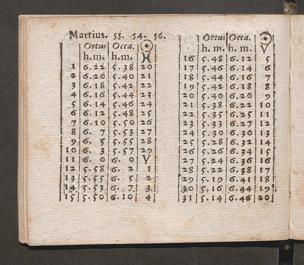 Martius. 53. 54. 56.
Ortus Occa. ☉
h. m. h. m. ♓
1 6.22 5.38 20
2 6.20 5.40 21
3 6.18 5.42 22
4 6.16 5.44 23
5 6.14 5.46 24
6 6.12 5.48 25
7 6.10 5.50 26
8 6. 7 5.53 27
9 6. 5 5.55 28
10 6. 3 5.57 29
11 6. 0 6. 0 ♈
12 5.58 6. 2 1
13 5.55 6. 5 2
14 5.53 6. 7 3
15 5.50 6.10 4
Ortus Occa. ☉
h. m. h. m. ♈
16 5.48 6.12 5
17 5.46 6.14 6
18 5.42 6.18 8
20 5.40 6.20 9
21 5.38 6.22 10
22 5.35 6.25 11
25 5.28 6.32 14
27 5.24 6.36 16
28 5.22 6.38 17
29 5.19 6.41 18
30 5.16 6.44 19
31 5.14 6.46 20